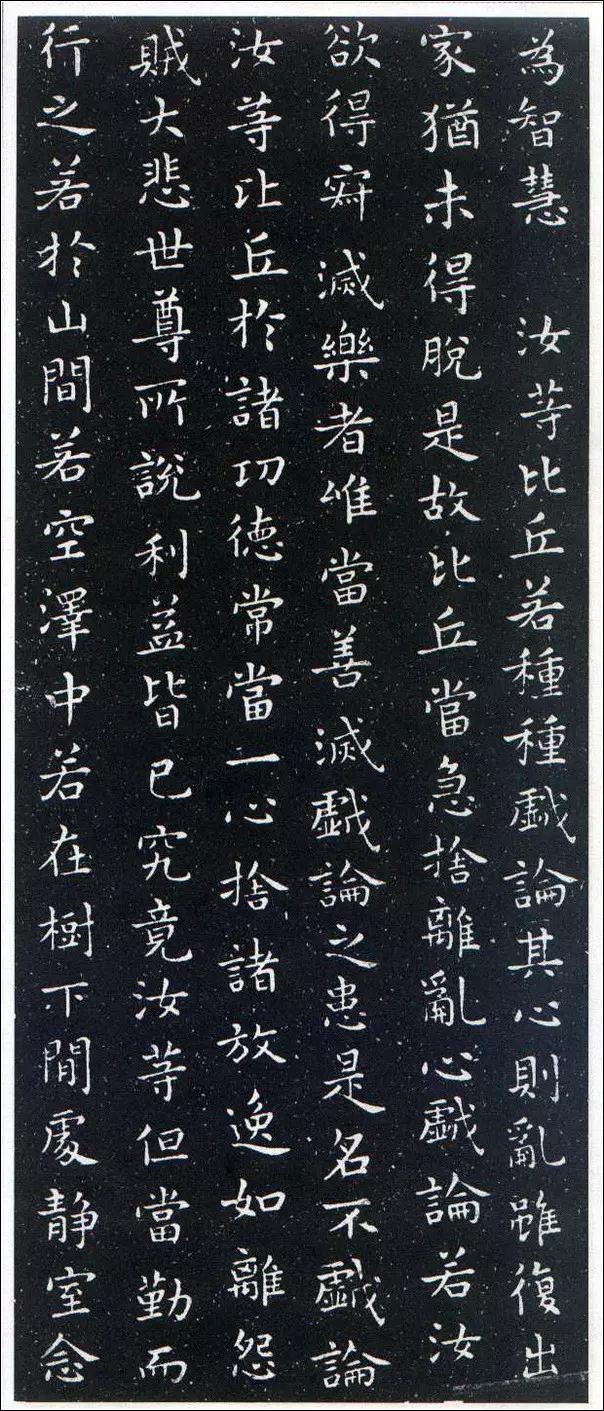 為智慧　汝等比丘若種種戲論其心則亂雖復出
家猶未得脫是故比丘當急捨離亂心戲論若汝
欲得寂滅樂者唯當善滅戲論之患是名不戲論
汝等比丘於諸功德常當一心捨諸放逸如離怨
賊大悲世尊所說利益皆已究竟汝等但當勤而
行之若於山間若空澤中若在樹下閒處靜室念